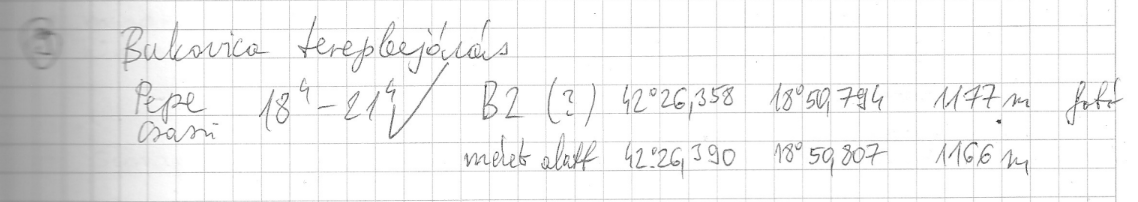 Bukovica terepbejárás
Pepe 18⁴-21⁴ ✓ B2 (?) 42°26,358 18°50,794 1177 m fotó
alatt 42°26,390 18°50,807 1166 m